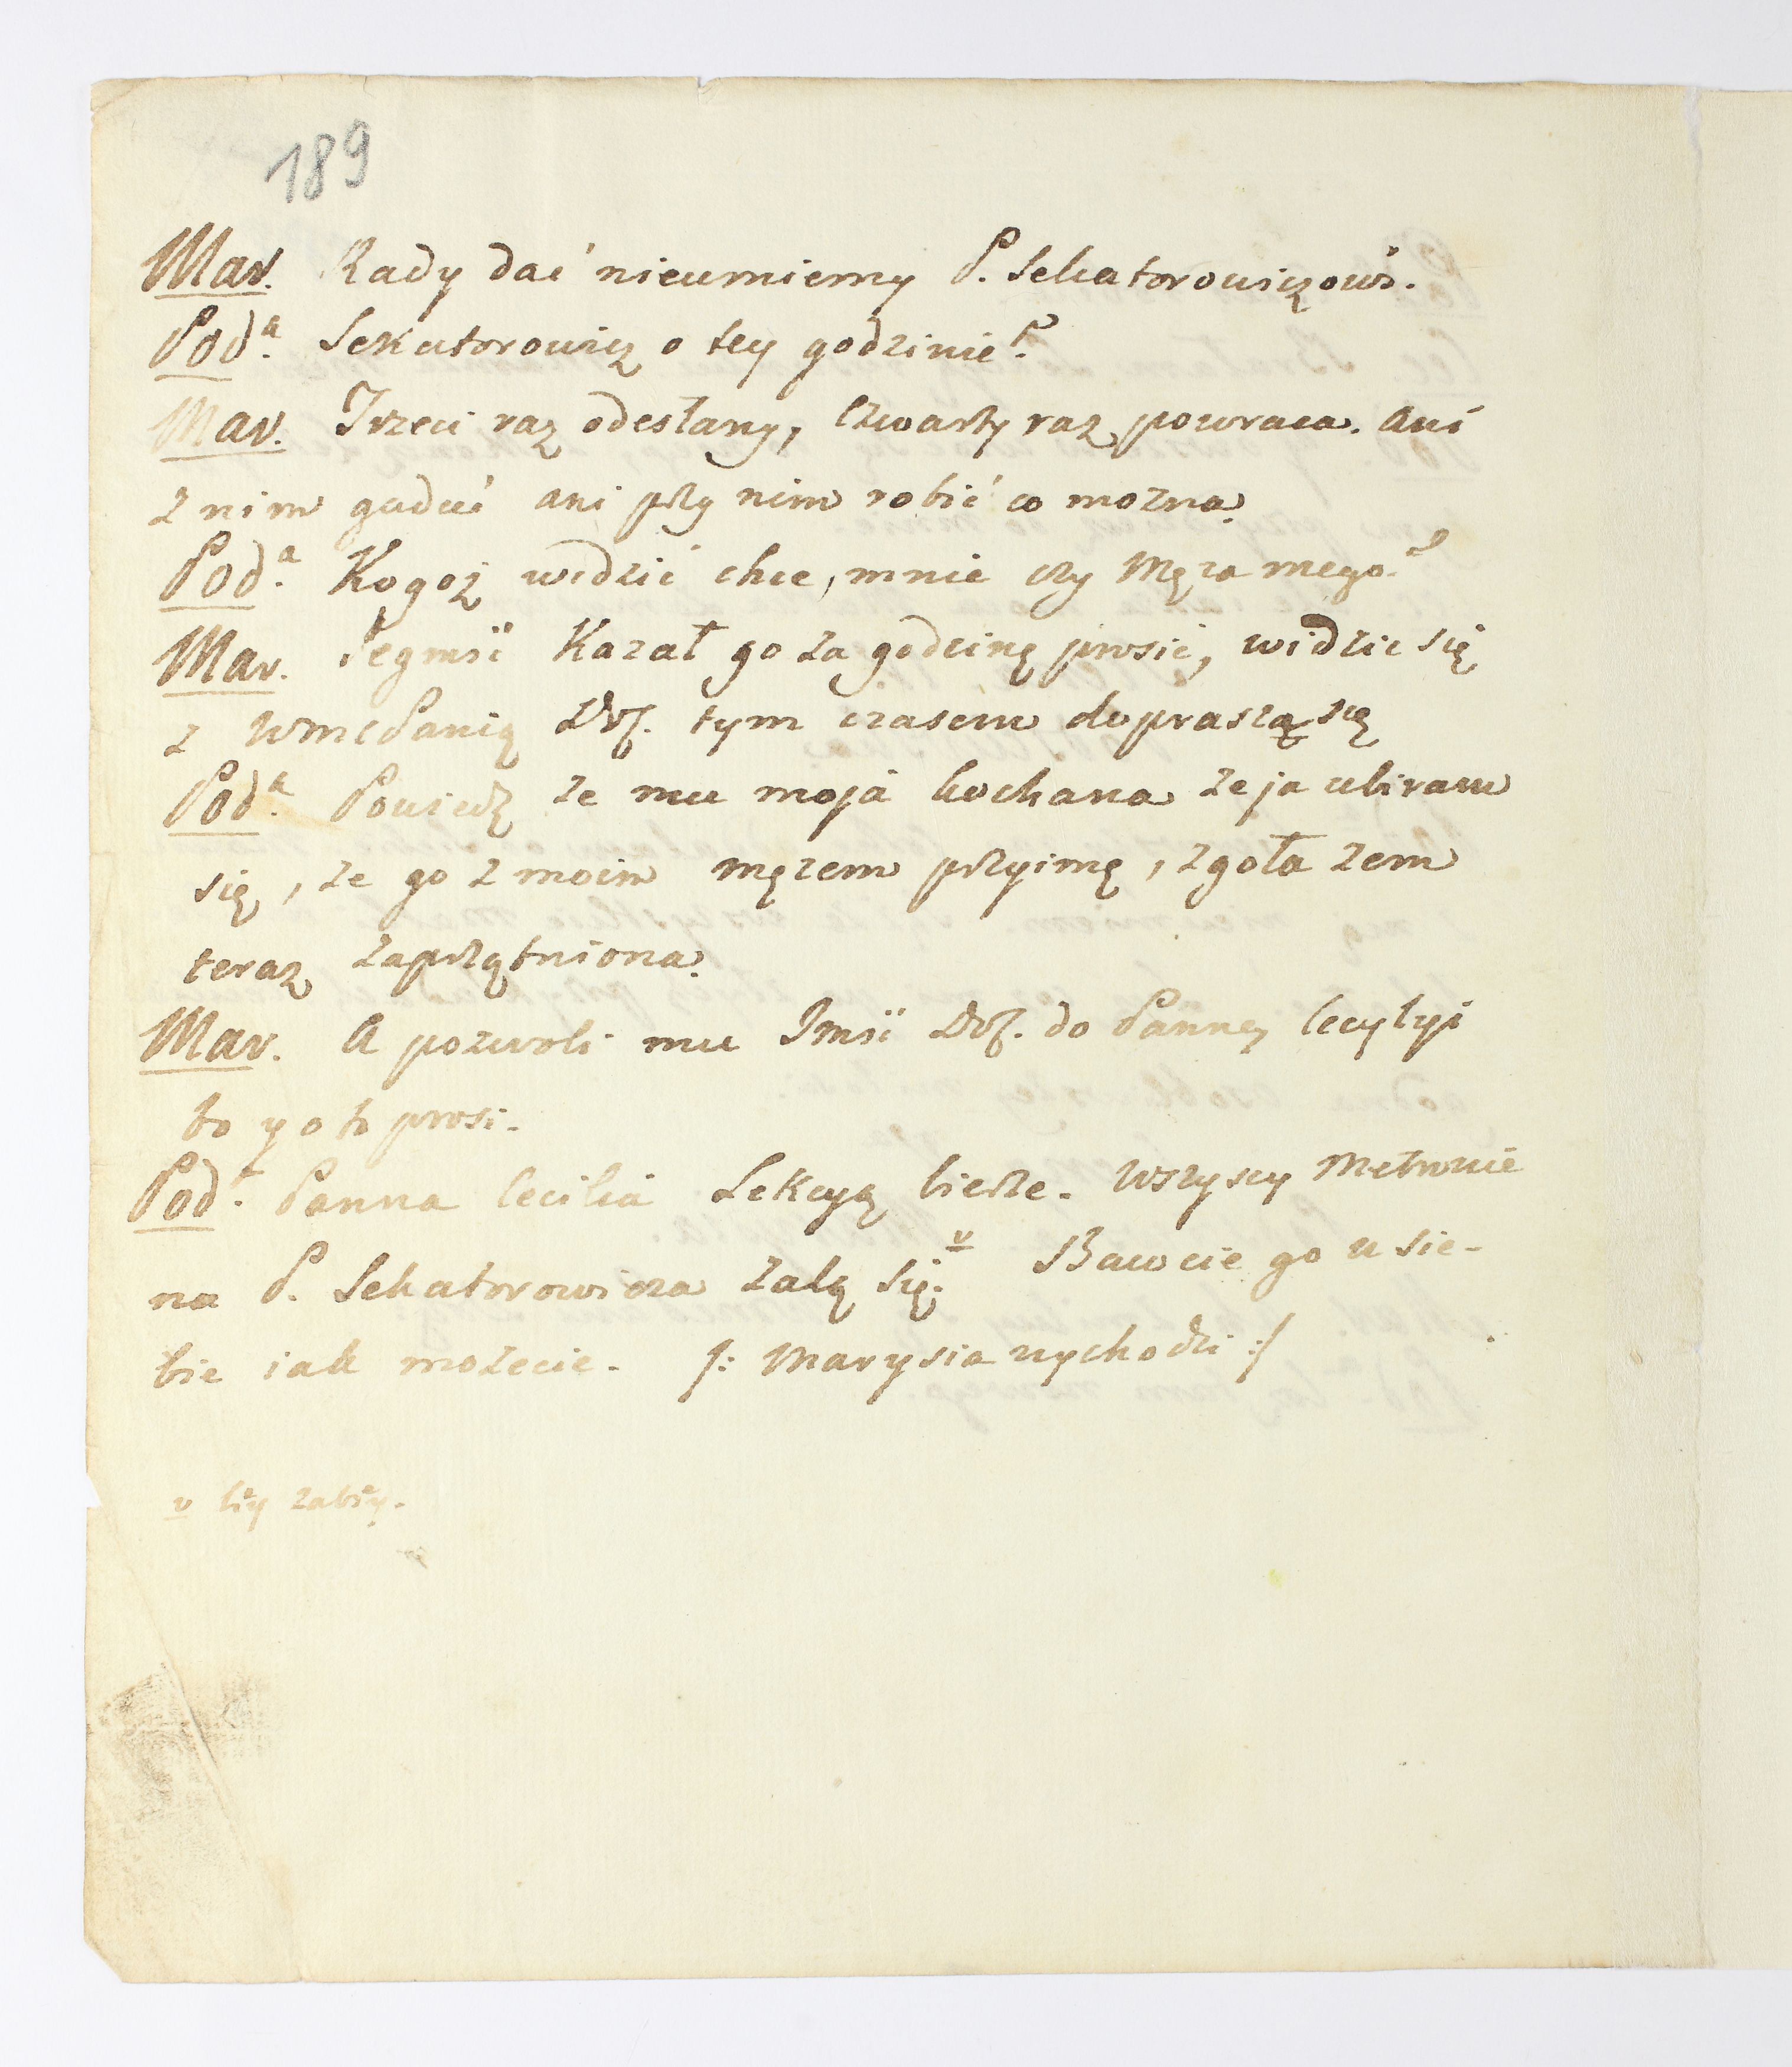 189
Mar. Rady dać nieumiemy P. Sekatorowiczowi.
Pod.a Sekatorowicz o tey godzinie?
Mar. Trzeci raz odesłany, czwarty raz powraca. Ani
z nim gadać ani przy nim robić co mozna.
Pod.a Kogoż widzić chce, mnie czy Męża mego?
Mar. Jegmśi Kazał go za godzinę prosić, widzic się
z WmcPanią Dof. tym czasem doprasza się
Pod.a Powiedz ze mu moja kochana ze ja ubiram
się, ze go z moim męzem przyimę, zgoła zem
teraz zaprzątniona.
Mar. A pozwoli mu Imśi Dof. do Panny Cecylyi
bo y o to prosi.
Pod.a Panna Cecilia Lekcyą bierze. Wszyscy Metrowie
na P. Sekatorowicza zalą się. v Bawcie go u sie-
bie iak mozecie. /: Marysia wychodzi :/
v